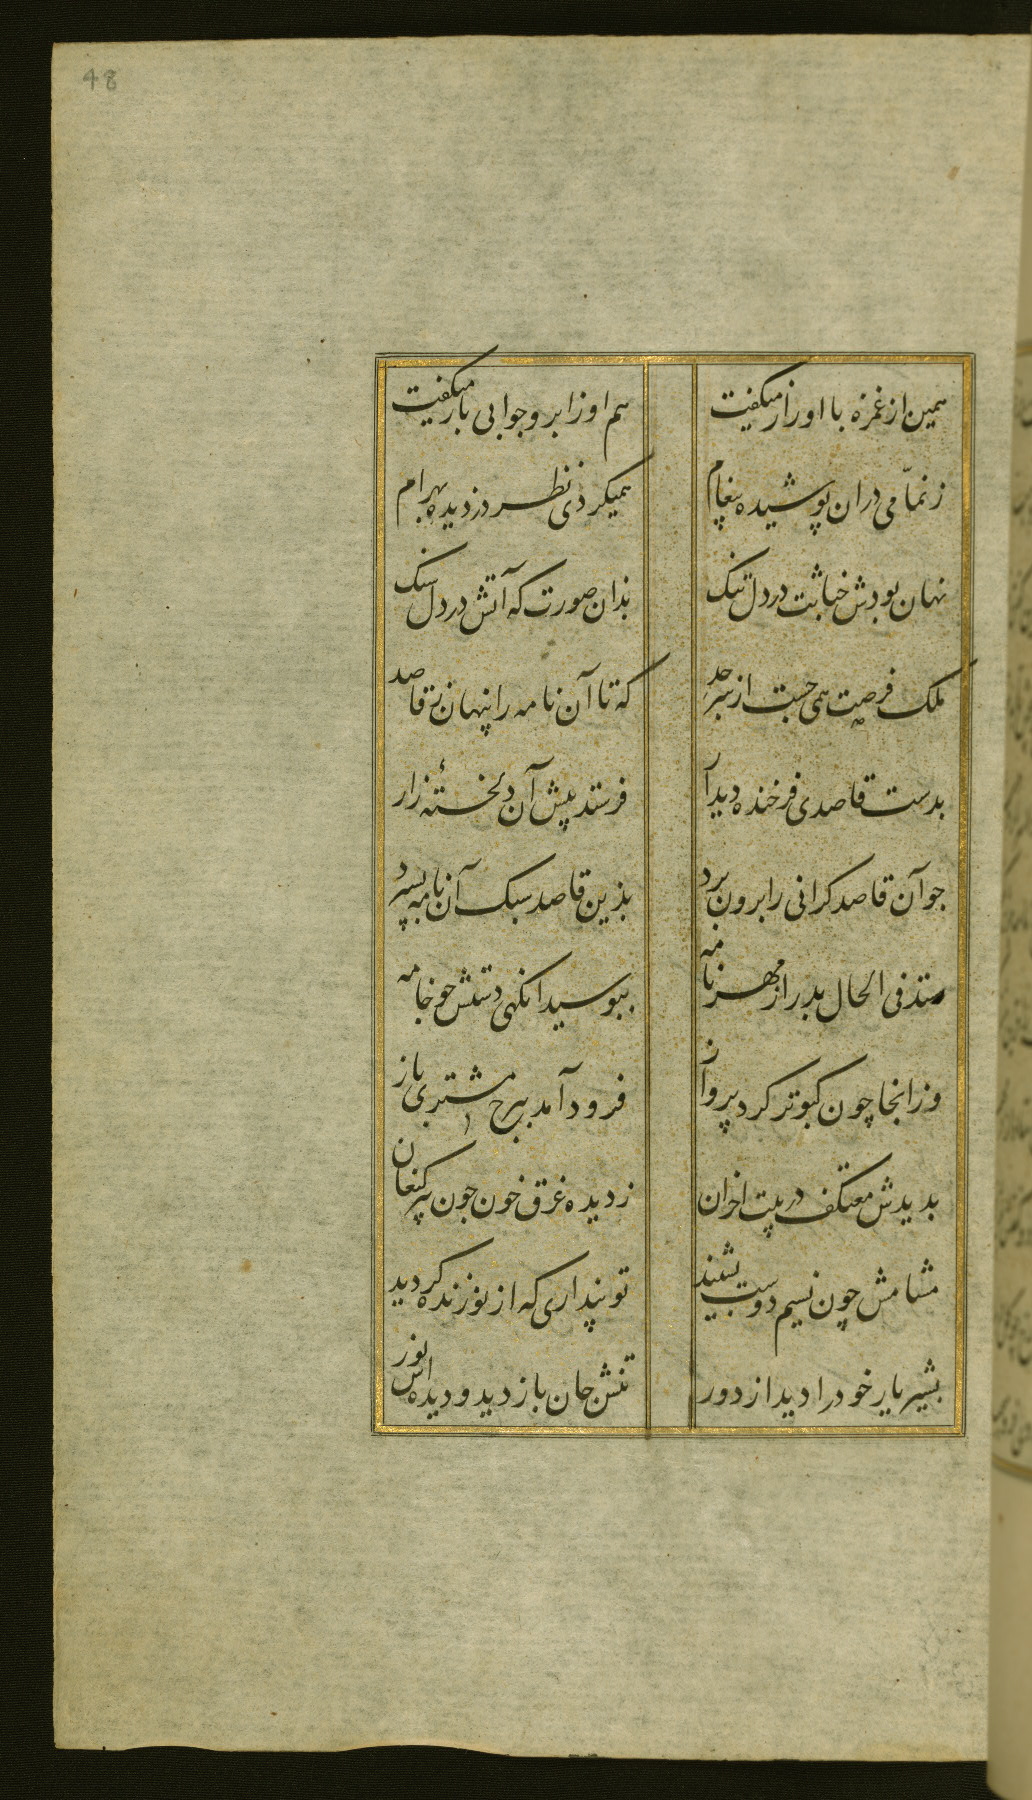 48
همین از غمزه با او راز میکفت
هم او زابرو جوابی باز میکفت
ز نمّامی دران پوشیده پیغام
همیکردی نظر دزدیده بهرام
نهان بودش خباثت در دل تنک
بدان صورت که آتش در دل سنک
ملک فرصت همی جست از سر جد
که تا آن نامه را پنهان ز قاصد
بدست قاصدی فرخنده دیدار
فرستد پیش آن دلخستهٔ زار
جو آن قاصد کرانی را برون برد
بذین قاصد سبک آن نامه بسپرد
ستد فی الحال بدر از مهر نامه
ببوسید انکهی دستش جو خامه
وز انجا چون کبوتر کرد پرواز
فرود آمد ببرج مشتری باز
بدیدش معتکف در بیت احزان
ز دیده غرق خون جون پیر کنعان
مشامش چون نسیم دوست بشنید
تو پنداری که از نو زنده کردید
بشیر یار خود را دید از دور
تنش جان باز دید و دیده اش نور